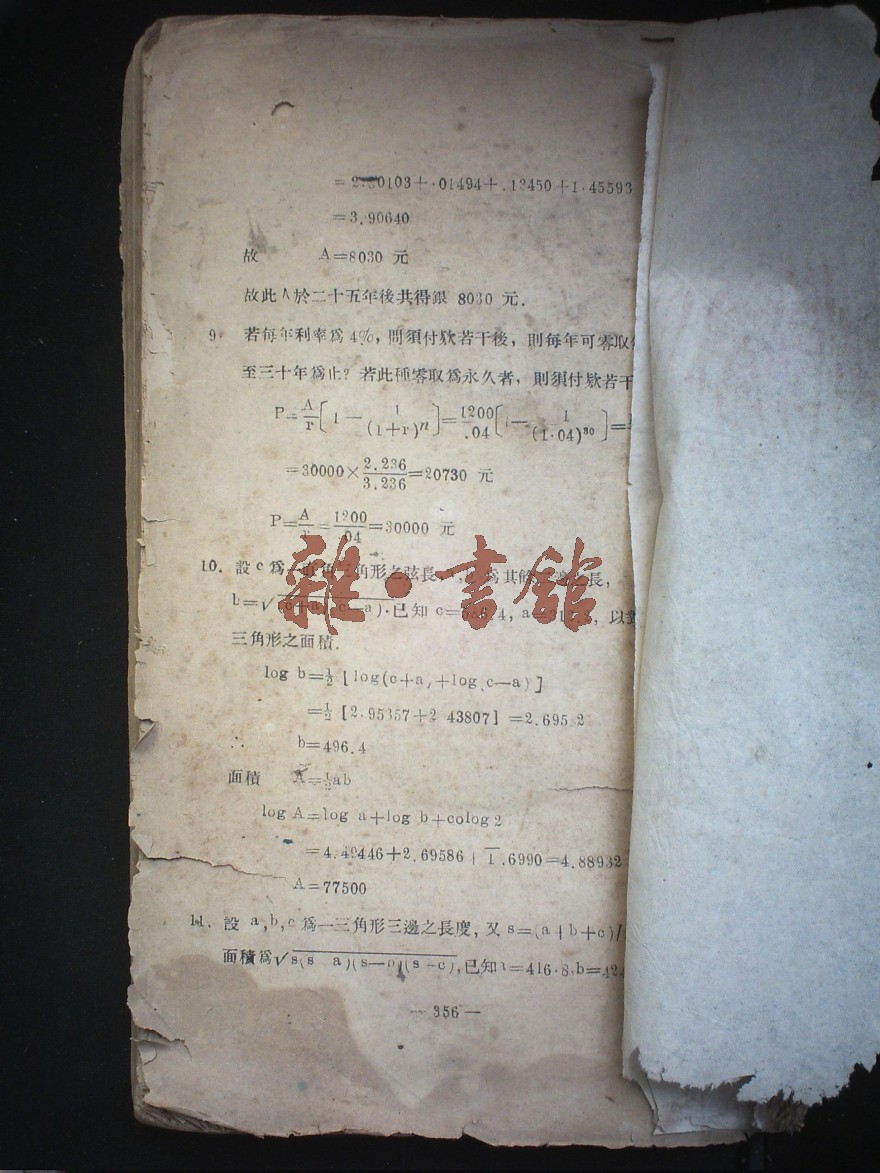 =2.30103+.01494+.13450+1.45593
=3.90640
故 A=8030 元
故此人於二十五年後共得銀 8030 元.
9. 若每年利率爲 4%, 問須付欵若干後, 則每年可零取
至三十年爲止? 若此種零取爲永久者, 則須付欵若干
P=A/r[1—1/(1+r)^n]=1200/.04[1—1/(1.04)^30]=
=30000×2.236/3.236=20730 元
P=A/r=1200/.04=30000 元
10. 設 c 爲一直角三角形之弦長, a, 爲其餘 邊之長,
b=√(c+a)(c—a).已知 c= .4, a= , 以
三角形之面積.
log b=½ [log(c+a)+log(c—a)]
=½ [2.95357+2.43807] =2.695 2
∴ b=496.4
面積 A=½ab
log A=log a+log b+colog 2
=4.49446+2.69586+1̅.6990=4.88932
A=77500
11. 設 a,b,c 爲一三角形三邊之長度, 又 s=(a+b+c)/
面積爲√s(s—a)(s—b)(s—c),已知a=416.8,b=424
— 356 —
雜·書館